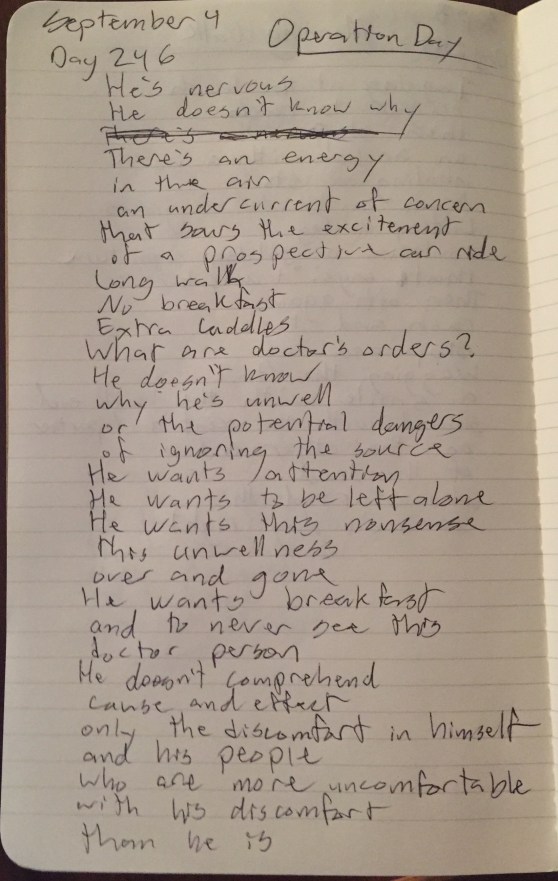 September 4
Operation Day
Day 246
He's nervous
He doesn't know why
There's an energy
in the air
an undercurrent of concern
that sours the excitement
of a prospective car ride
Long walk
No breakfast
Extra Cuddles
What are doctor's orders?
He doesn't know
why he's unwell
or the potential dangers
of ignoring the source
He wants attention
He wants to be left alone
He wants this nonsense
this unwellness
over and gone
He wants breakfast
and to never see this
doctor person
He doesn't comprehend
cause and effect
only the discomfort in himself
and his people
who are more uncomfortable
with his discomfort
than he is